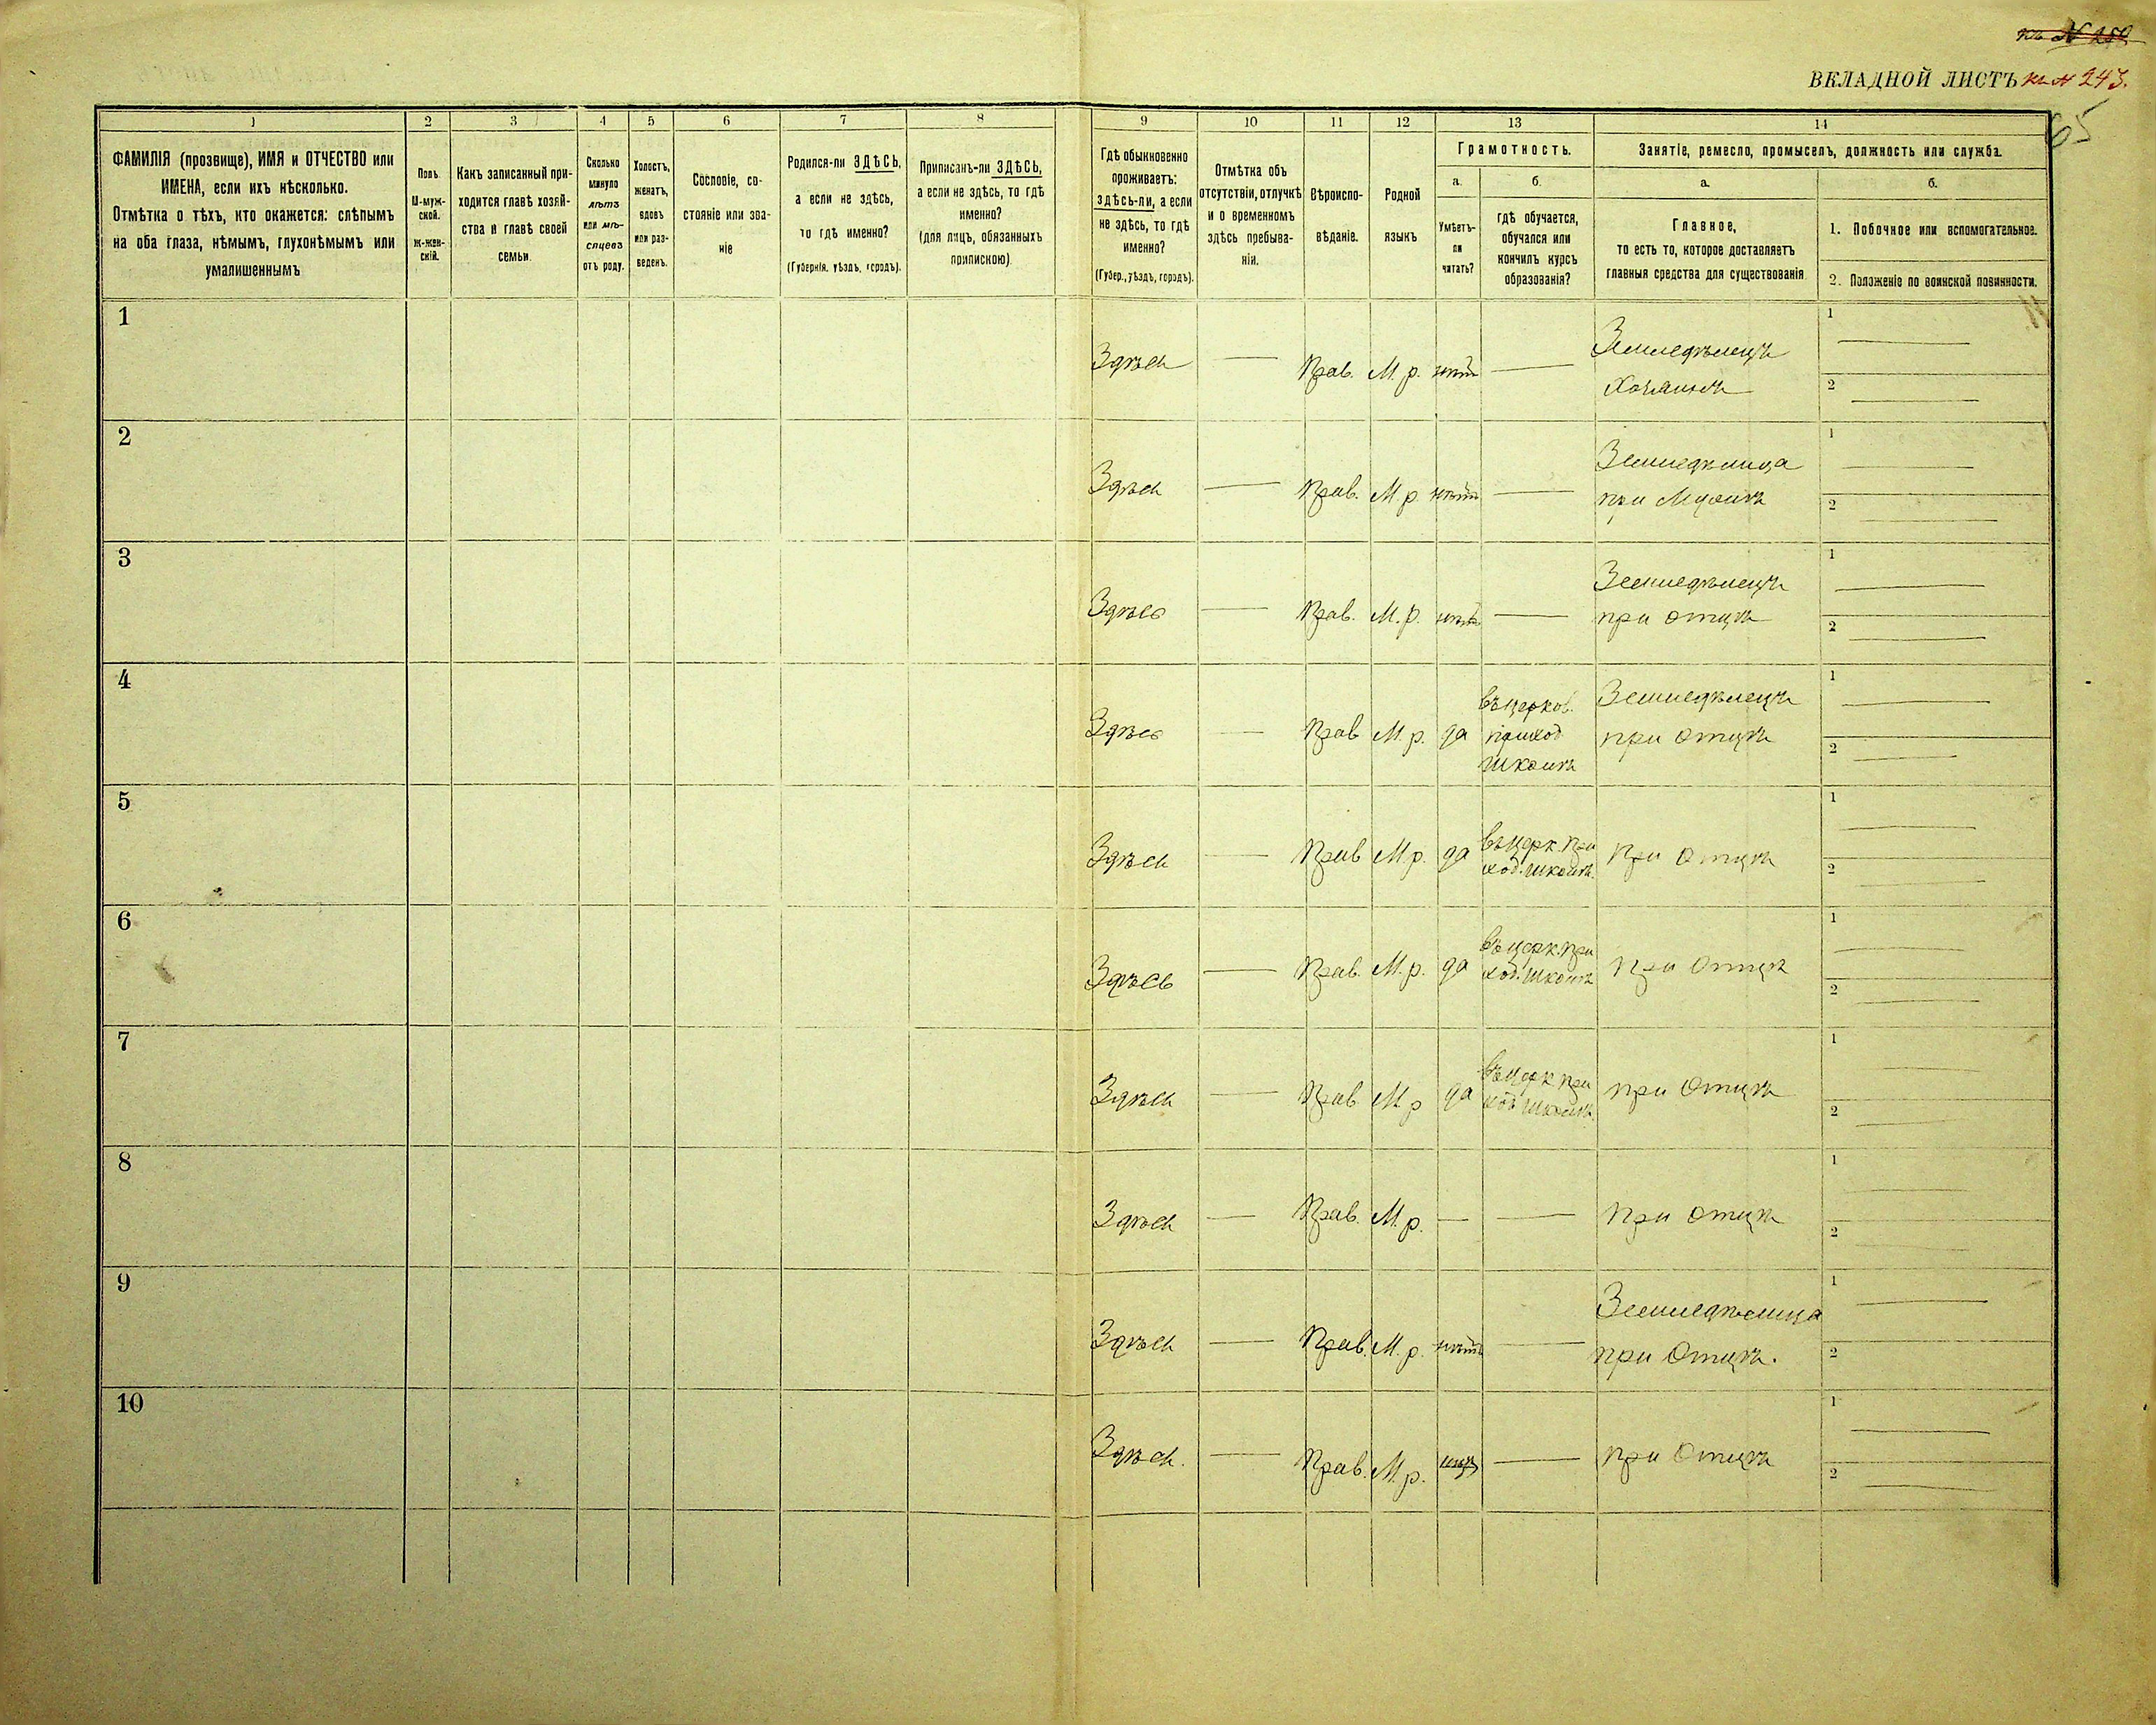 къ N 250
ВКЛАДНОЙ ЛИСТЪ къ N 243.
65
1 2 3 4 5 6 7 8 9 10 11 12 13 14
ФАМИЛІЯ (прозвище), ИМЯ и ОТЧЕСТВО или
ИМЕНА, если ихъ нѣсколько.
Отмѣтка о тѣхъ, кто окажется: слѣпымъ
на оба глаза, нѣмымъ, глухонѣмымъ или
умалишеннымъ
Полъ.
М-муж-
ской.
Ж-жен-
скій.
Какъ записанный при-
ходится главѣ хозяй-
ства и главѣ своей
семьи.
Сколько
минуло
лѣтъ
или мѣ-
сяцевъ
отъ роду.
Холостъ,
женатъ,
вдовъ
или раз-
веденъ.
Сословіе, со-
стояніе или зва-
ніе
Родился-ли ЗДѢСЬ,
а если не здѣсь,
то гдѣ именно?
(Губернія, уѣздъ, городъ).
Приписанъ-ли ЗДѢСЬ,
а если не здѣсь, то гдѣ
именно?
(для лицъ, обязанныхъ
припискою)
Гдѣ обыкновенно
проживаетъ:
здѣсь-ли, а если
не здѣсь, то гдѣ
именно?
(Губер., уѣздъ, городъ).
Отмѣтка объ
отсутствіи, отлучкѣ
и о временномъ
здѣсь пребыва-
ніи.
Вѣроиспо-
вѣданіе.
Родной
языкъ
Грамотность.
а.
Умѣетъ-
ли
читать?
б.
гдѣ обучается,
обучался или
кончилъ курсъ
образованія?
Занятіе, ремесло, промыселъ, должность или служба.
а.
Главное,
то есть то, которое доставляетъ
главныя средства для существованія
б.
1. Побочное или вспомогательное.
2. Положеніе по воинской повинности.
1
Здѣсь — Прав. М. р. нѣтъ —
Земледѣлецъ
Хозяинъ
1 —
2 —
2
Здѣсь — Прав. М. р. нѣтъ —
Земледѣлица
при Мужѣ
1 —
2 —
3
Здѣсь — Прав. М. р. нѣтъ —
Земледѣлецъ
при отцѣ
1 —
2 —
4
Здѣсь — Прав М. р. да
въ церков.
приход
школѣ
Земледѣлецъ
при отцѣ
1 —
2 —
5
Здѣсь — Прав М. р. да
въ церк. при
ход. школѣ.
при Отцѣ
1 —
2 —
6
Здѣсь — Прав. М. р. да
въ церк. при
ход. школѣ
при Отцѣ
1 —
2 —
7
Здѣсь — Прав М. р да
въ церк при
ход школѣ.
при Отцѣ
1 —
2 —
8
Здѣсь — Прав. М. р. — — при отцѣ
1 —
2 —
9
Здѣсь — Прав. М. р. нѣтъ —
Земледѣлица
при Отцѣ.
1 —
2 —
10
Здѣсь. — Прав. М. р. — при Отцѣ
1 —
2 —